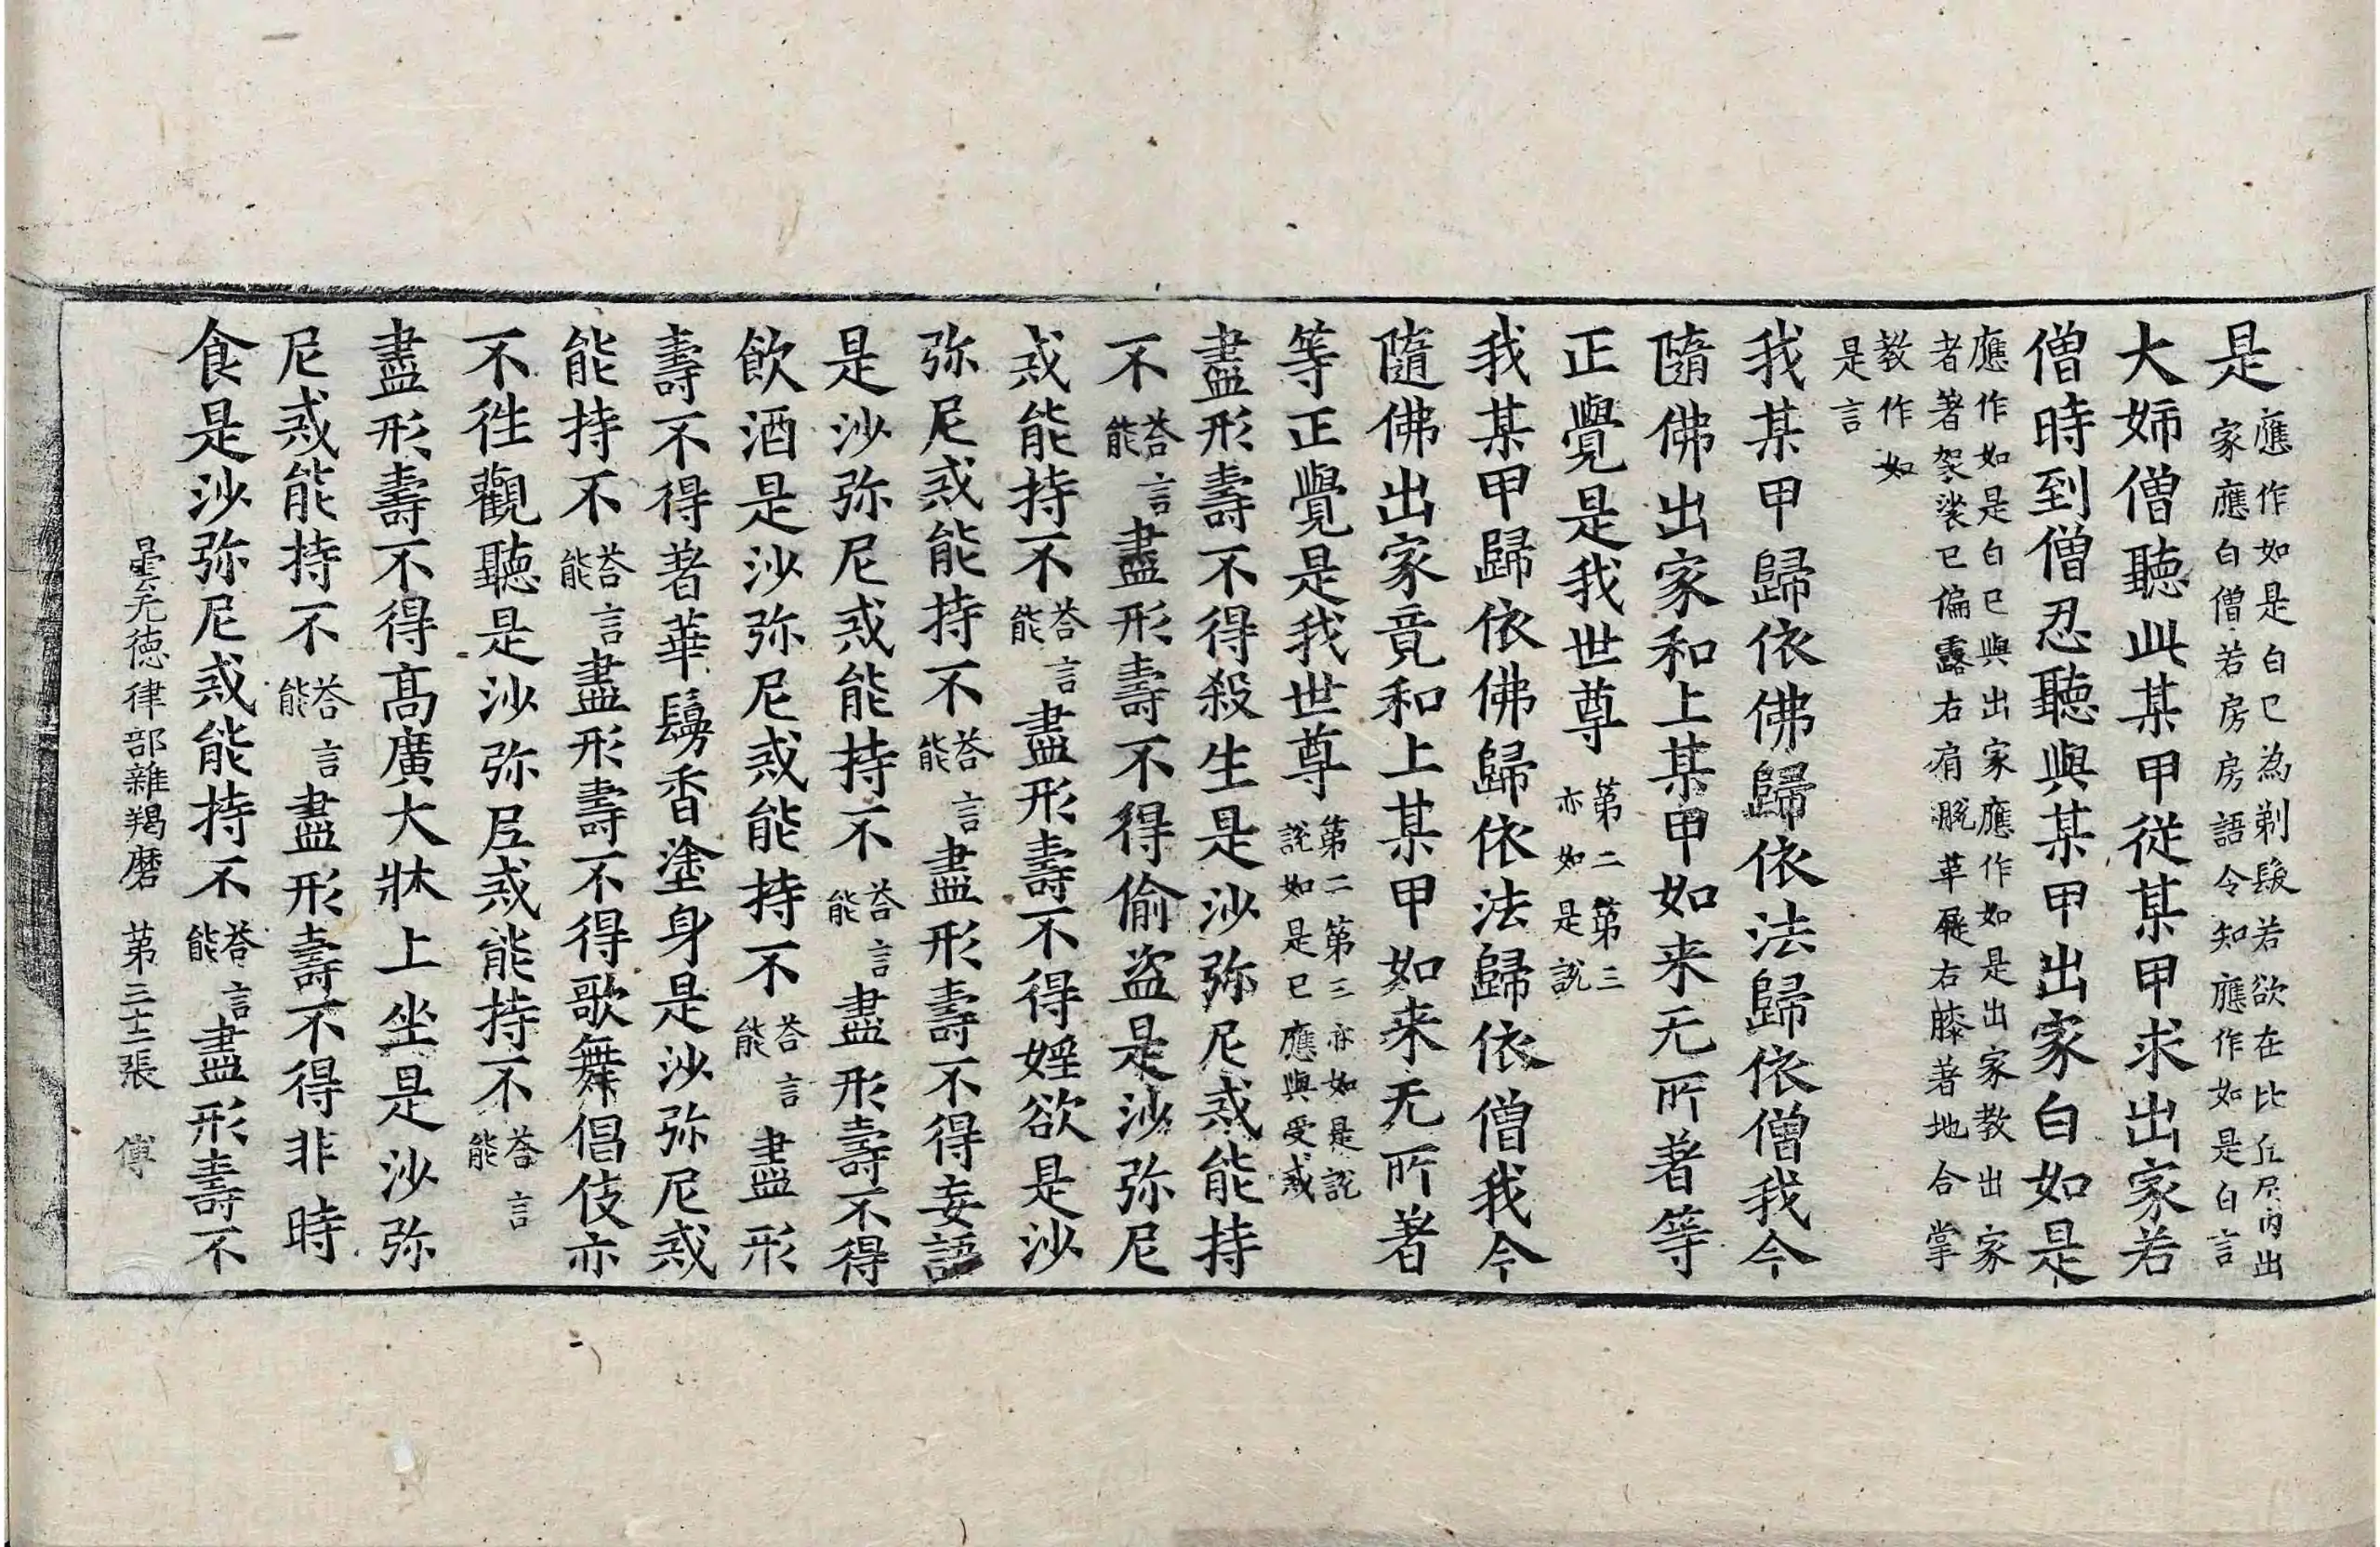 是應作如是白已為剃髮若欲在比丘尼内出
家應白僧若房房語令知應作如是白言
大姉僧聽此某甲従某甲求出家若
僧時到僧忍聽與某甲出家白如是
應作如是白已與出家應作如是出家教出家
者著袈裟已偏露右肩脱革屣右膝著地合掌
教作如
是言
我某甲歸依佛歸依法歸依僧我今
隨佛出家和上某甲如来无所著等
正覺是我世尊第二第三
亦如是說
我某甲歸依佛歸依法歸依僧我今
隨佛出家竟和上某甲如来无所著
等正覺是我世尊第二第三亦如是說
說如是已應與受戒
盡形壽不得殺生是沙弥尼戒能持
不荅言能盡形壽不得偷盗是沙弥尼
戒能持不荅言能盡形壽不得婬欲是沙
弥尼戒能持不荅言能盡形壽不得妄語
是沙弥尼戒能持不荅言能盡形壽不得
飲酒是沙弥尼戒能持不荅言能盡形
壽不得著華鬘香塗身是沙弥尼戒
能持不荅言能盡形壽不得歌舞倡伎亦
不徃觀聽是沙弥尼戒能持不荅言能
盡形壽不得高廣大牀上坐是沙弥
尼戒能持不荅言能盡形壽不得非時
食是沙弥尼戒能持不荅言能盡形壽不
曇无徳律部雜羯磨 第三十二張 傅